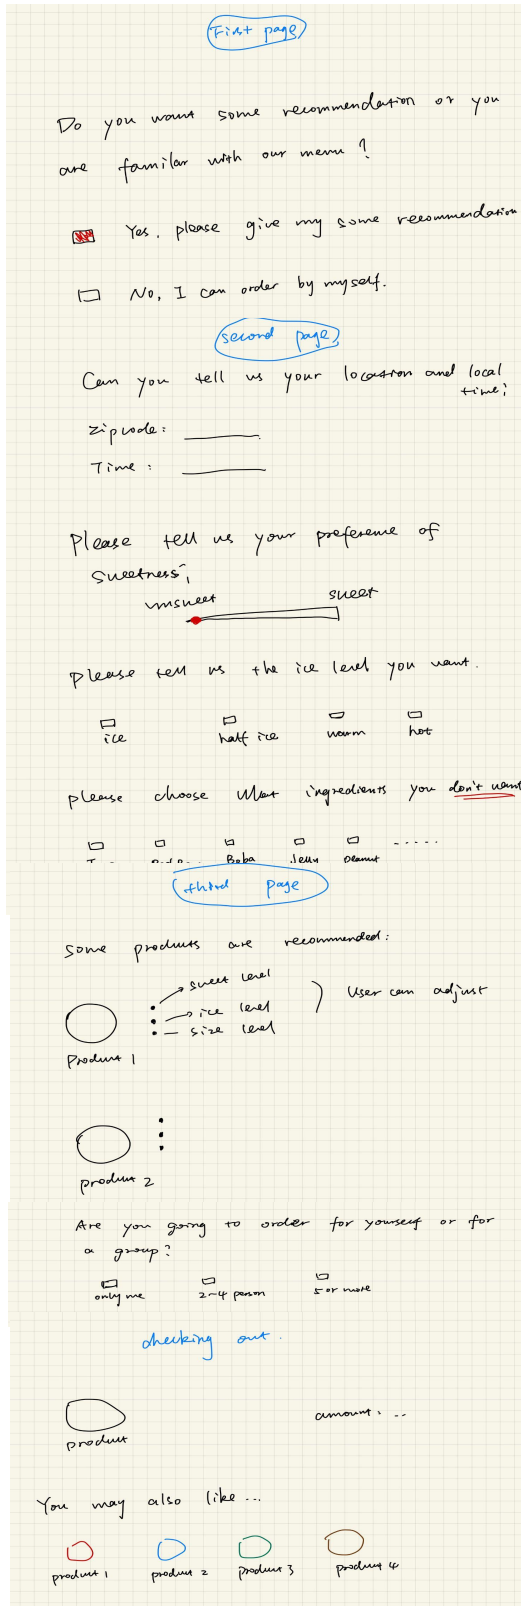 First page
Do you want some recommendation or you
are familar with our menu ?
Yes, please give my some recommendation
No, I can order by myself.
second page
Can you tell us your location and local
time?
Zipcode:
Time :
Please tell us your preference of
sweetness;
unsweet
sweet
Please tell us the ice level you want.
ice
half ice
warm
hot
please choose what ingredients you don't want
Boba
Jelly
peanut
.....
third page
Some products are recommended:
sweet level
ice level
size level
User can adjust
Product 1
product 2
Are you going to order for yourself or for
a group?
only me
2~4 person
5 or more
checking out.
product
amount: ..
You may also like ...
product 1
product 2
product 3
product 4